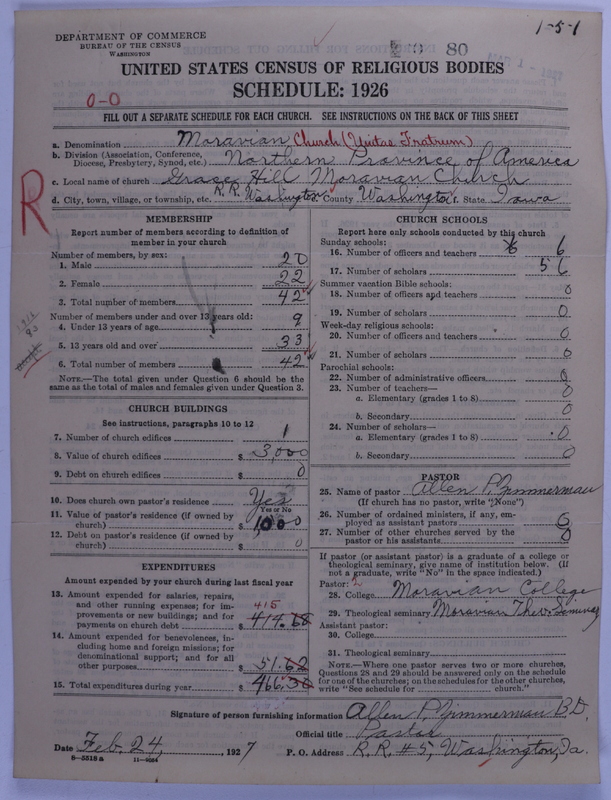 1-5-1
DEPARTMENT OF COMMERCE
BUREAU OF THE CENSUS
WASHINGTON
80
UNITED STATES CENSUS OF RELIGIOUS BODIES
SCHEDULE: 1926
0-0
FILL OUT A SEPARATE SCHEDULE FOR EACH CHURCH. SEE INSTRUCTIONS ON THE BACK OF THIS SHEET
a. Denomination Moravian Church (Unitas Fratrum)
b. Division (Association, Conference, Diocese, Presbytery, Synod, etc.) Northern Province of America
c. Local name of church Grace Hill Moravian Church
d. City, town, village, or township, etc. R.R. Washington e. County Washington f. State Iowa
R
MEMBERSHIP
Report number of members according to definition of
member in your church
Number of members, by sex:
1. Male 20
2. Female 22
3. Total number of members 42
Number of members under and over 13 years old:
4. Under 13 years of age 9
5. 13 years old and over 33
6. Total number of members 42
NOTE.—The total given under Question 6 should be the
same as the total of males and females given under Question 3.
CHURCH BUILDINGS
See instructions, paragraphs 10 to 12
7. Number of church edifices 1
8. Value of church edifices $ 3,000
9. Debt on church edifices $ 0
10. Does church own pastor's residence Yes
Yes or No
11. Value of pastor's residence (if owned by
church) $ 1000
12. Debt on pastor's residence (if owned by
church) $ 0
EXPENDITURES
Amount expended by your church during last fiscal year
13. Amount expended for salaries, repairs,
and other running expenses; for im-
provements or new buildings; and for
payments on church debt $ 414.68
415
14. Amount expended for benevolences, in-
cluding home and foreign missions; for
denominational support; and for all
other purposes $ 51.62
15. Total expenditures during year $ 466.30
CHURCH SCHOOLS
Report here only schools conducted by this church
Sunday schools:
16. Number of officers and teachers 6
17. Number of scholars 56
Summer vacation Bible schools:
18. Number of officers and teachers 0
19. Number of scholars 0
Week-day religious schools:
20. Number of officers and teachers 0
21. Number of scholars 0
Parochial schools:
22. Number of administrative officers 0
23. Number of teachers—
a. Elementary (grades 1 to 8) 0
b. Secondary 0
24. Number of scholars—
a. Elementary (grades 1 to 8) 0
b. Secondary 0
PASTOR
25. Name of pastor Allen P. Zimmerman
(If church has no pastor, write "None")
26. Number of ordained ministers, if any, em-
ployed as assistant pastors 0
27. Number of other churches served by the
pastor or his assistants 0
If pastor (or assistant pastor) is a graduate of a college or
theological seminary, give name of institution below. (If
not a graduate, write "No" in the space indicated.)
Pastor: 2
28. College Moravian College
29. Theological seminary Moravian Theo. Seminary
Assistant pastor:
30. College
31. Theological seminary
NOTE.—Where one pastor serves two or more churches,
Questions 28 and 29 should be answered only on the schedule
for one of the churches; on the schedules for the other churches,
write "See schedule for church."
Signature of person furnishing information Allen P. Zimmerman B.D.
Official title Pastor
Date Feb. 24, 1927 P. O. Address R.R. #5, Washington, Ia.
8-5518 a 11-9054